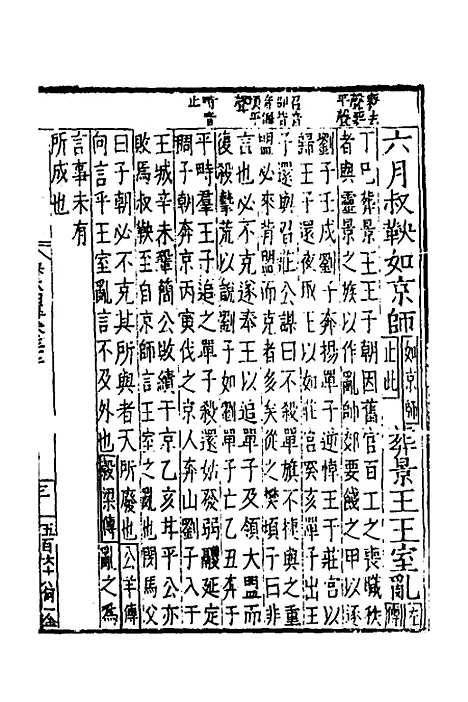 喪去聲要平聲
召音邵背音佩頃平聲
時音止
六月叔鞅如京師如京師止此葬景王王室亂左傳
丁巳葬景王王子朝因舊官百工之喪職秩
者與靈景之族以作亂帥郊要餞之甲以逐
劉子壬戌劉子奔揚單子逆悼王于莊宮以
歸王子還夜取王以如莊宮癸亥單子出王
子還與召莊公謀曰不殺單旗不捷與之重
盟必來背盟而克者多矣從之樊頃子曰非
言也必不克遂奉王以追單子及領大盟而
復殺摯荒以說劉子如劉單子亡乙丑奔于
平畤羣王子追之單子殺還姑發弱鬷延定
稠子朝奔京丙寅伐之京人奔山劉子入于
王城辛未鞏簡公敗績于京乙亥甘平公亦
敗焉叔鞅至自京師言王室之亂也閔馬父
曰子朝必不克其所與者天所廢也公羊傳
何言乎王室亂言不及外也穀梁傳亂之爲
言事未有
所成也
三
五百六十